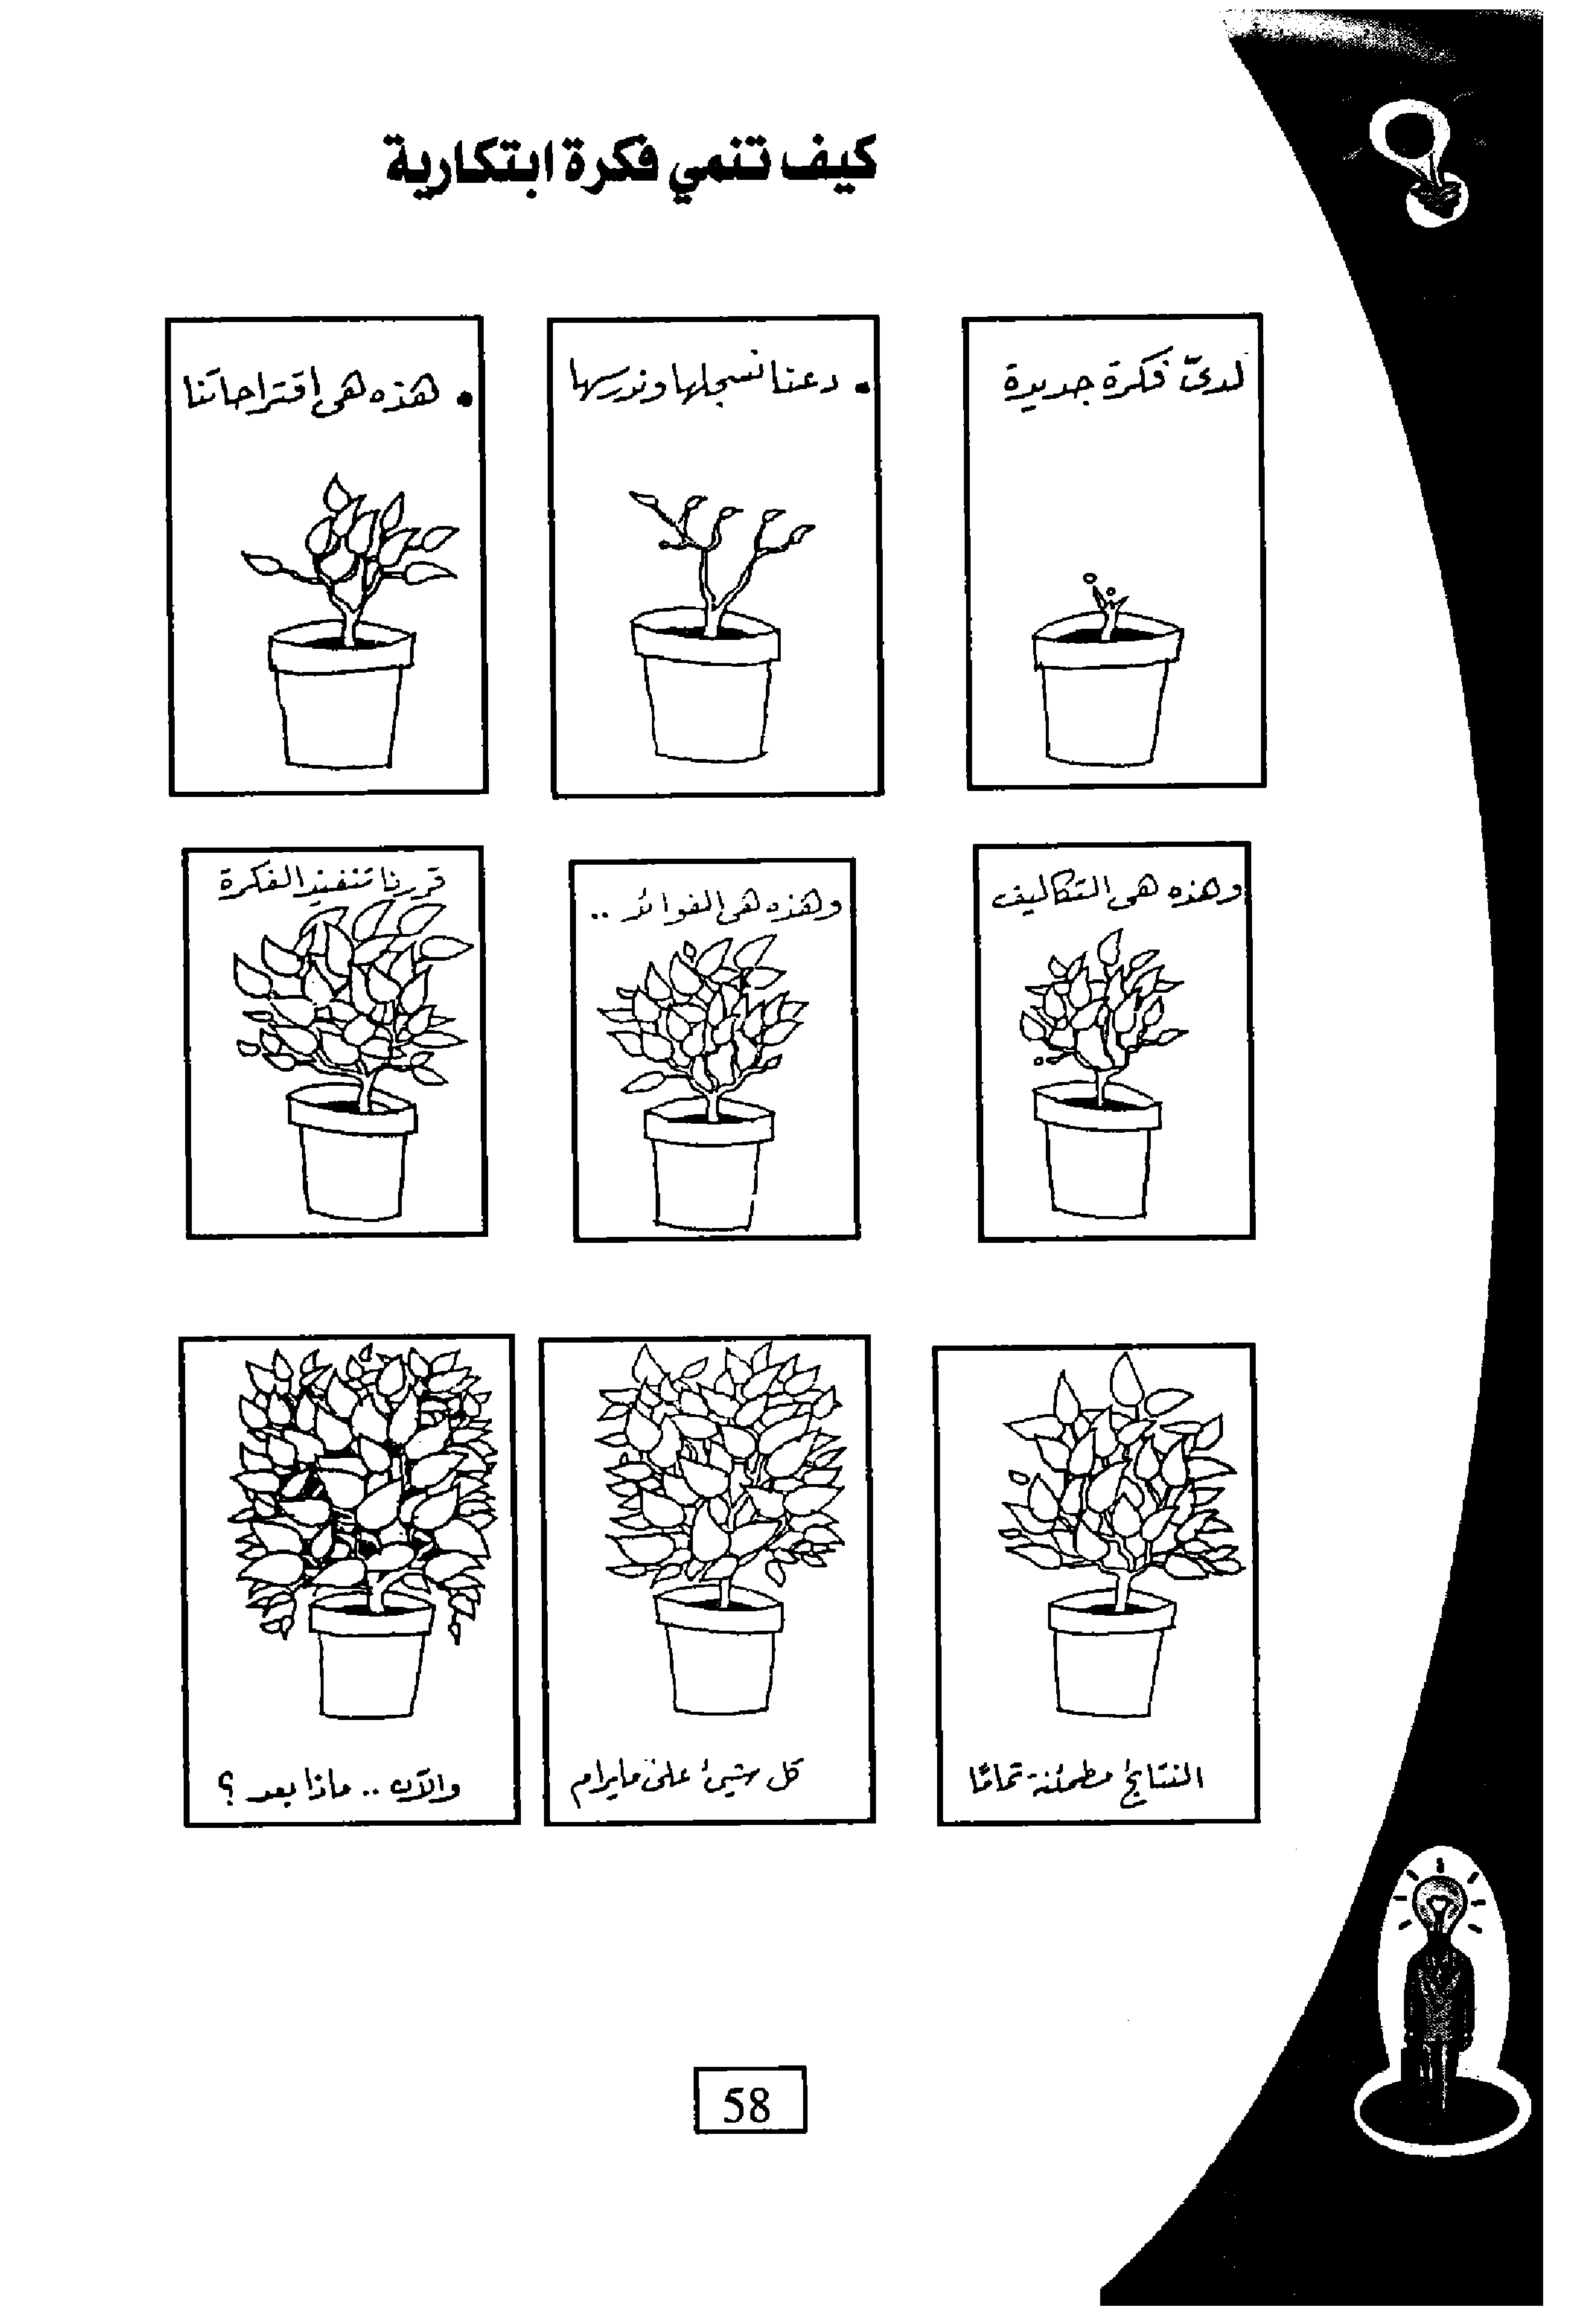 كيف تنمي فكرة ابتكارية
لدىّ فكرة جديدة
• دعنا نسجلها وندرسها
• هذه هى اقتراحاتنا
وهذه هى التكاليف
وهذه هى الفوائد ..
قررنا تنفيذ الفكرة
النتائج مطمئنة تمامًا
كل شيئ على مايرام
والآن .. ماذا بعد ؟
58